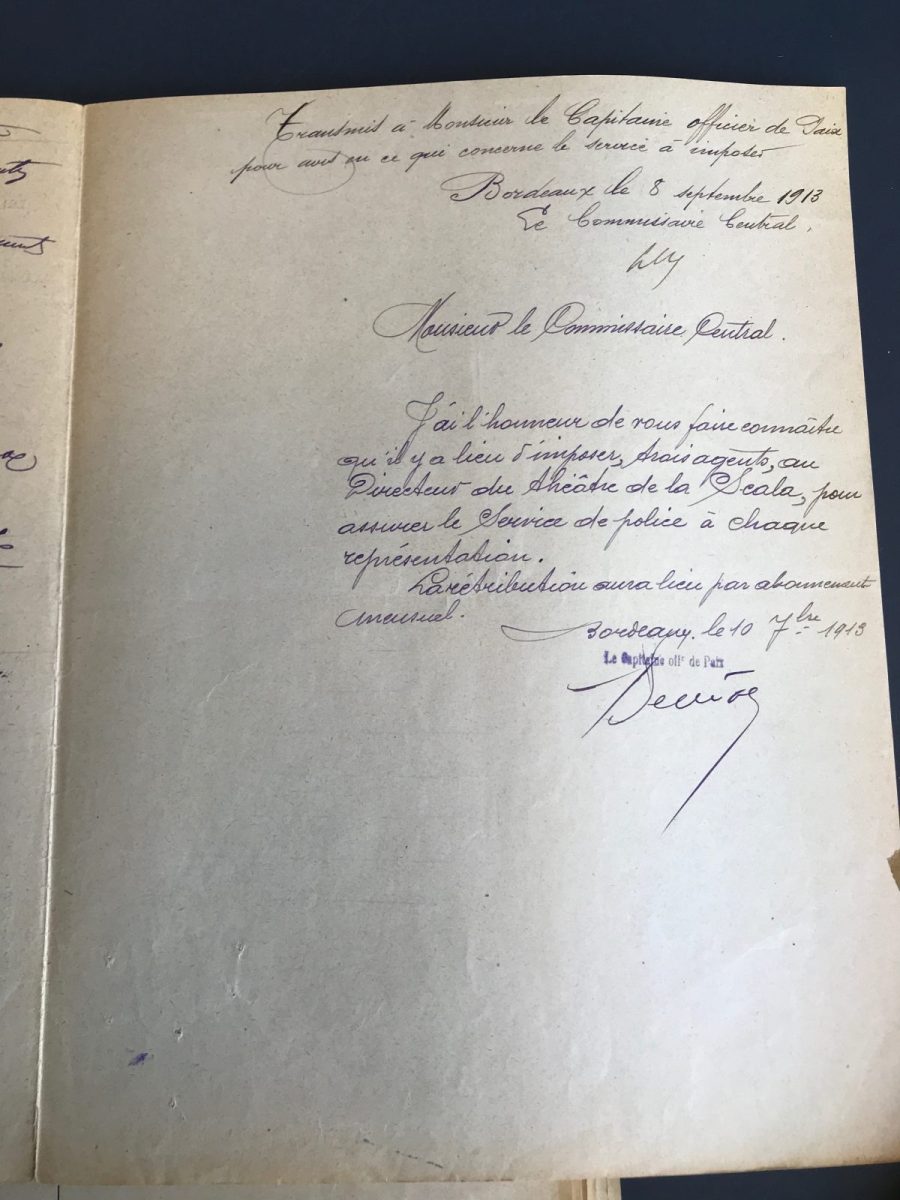 Transmis à Monsieur le Capitaine officier de Paix
pour avis en ce qui concerne le service à imposer
Bordeaux le 8 septembre 1913
Le Commissaire Central,
Monsieur le Commissaire Central.
J'ai l'honneur de vous faire connaître
qu'il y a lieu d'imposer, trois agents, au
Directeur du théâtre de la Scala, pour
assurer le Service de police à chaque
représentation.
La rétribution aura lieu par abonnement
mensuel.
Bordeaux, le 10 7bre 1913
Le Capitaine offr de Paix